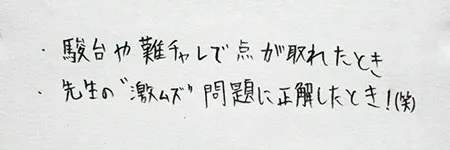 ・駿台や難チャレで点が取れたとき
・先生の"激ムズ"問題に正解したとき!(笑)